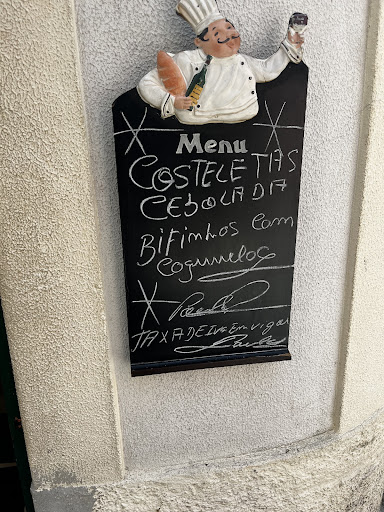 Menu
COSTELETAS
CEBOLADA
Bifinhos com
Cogumelos
TAXA DE IVA Em vigor